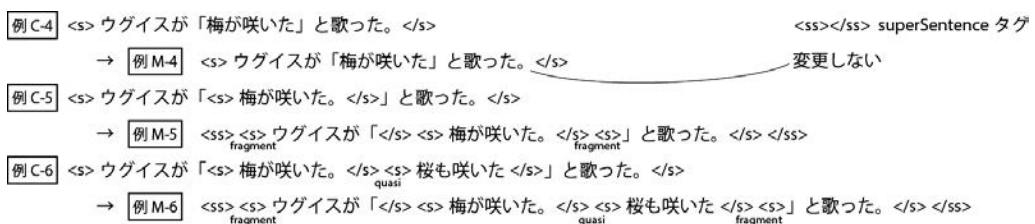 例 C-4 <s> ウグイスが「梅が咲いた」と歌った。</s> <ss></ss> superSentence タグ
→ 例 M-4 <s> ウグイスが「梅が咲いた」と歌った。</s> 変更しない
例 C-5 <s> ウグイスが「<s> 梅が咲いた。</s>」と歌った。</s>
→ 例 M-5 <ss> <s> ウグイスが「</s> <s> 梅が咲いた。</s> <s>」と歌った。</s> </ss>
fragment fragment
例 C-6 <s> ウグイスが「<s> 梅が咲いた。</s> <s> 桜も咲いた </s>」と歌った。</s>
quasi
→ 例 M-6 <ss> <s> ウグイスが「</s> <s> 梅が咲いた。</s> <s> 桜も咲いた </s> <s>」と歌った。</s> </ss>
fragment quasi fragment